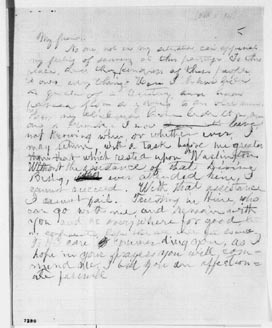 My friends
No one not in my situation can appreciate
my feeling of sadness at this parting. To this
place, and the kindness of these people
I owe every thing. Here I have lived
a quarter of a century, and have
passed from a young to an old man.
Here my children have been born and
one is buried. I now leave
not knowing when, or whether ever, I
may return, with a task before me greater
than that which rested upon Washington
Without the assistance of that Divine
Being, who ever attended him, I
cannot succeed. With that assistance
I cannot fail. Trusting in Him, who
can go with me, and remain with
you and be every where for good let
us confidently hope that all will yet be well
To His care commending you, as I
hope in your prayers you will com-
mend me, I bid you an affection-
ate farewell